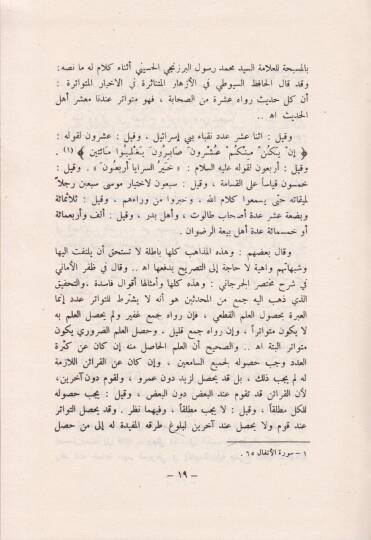 بالمسبحة للعلامة السيد محمد رسول البرزنجي الحسيني أثناء كلام له ما نصه :
وقد قال الحافظ السيوطي في الأزهار المتناثرة في الاخبار المتواترة :
أن كل حديث رواه عشرة من الصحابة ، فهو متواتر عندنا معشر أهل
الحديث اه ..
وقيل : اثنا عشر عدد نقباء بني إسرائيل ، وقيل : عشرون لقوله :
﴿ إِنْ يَكُنْ مِنْكُمْ عِشْرُونَ صَابِرُونَ يَغْلِبُوا مِائَتَيْنِ ﴾ (١)
وقيل : أربعون لقوله عليه السلام : « خَيْرُ السرايا أربعون » .. وقيل :
خمسون قياساً على القسامة ، وقيل : سبعون لاختيار موسى سبعين رجلاً
لميقاته حتى يسمعوا كلام الله ، وخبروا من وراءهم ، وقيل : ثلاثمائة
وبضعة عشر عدة أصحاب طالوت ، وأهل بدر ، وقيل : ألف وأربعمائة
أو خمسمائة عدة أهل بيعة الرضوان .
وقال بعضهم : وهذه المذاهب كلها باطلة لا تستحق أن يلتفت اليها
وشبهاتهم واهية لا حاجة إلى التصريح بدفعها اه .. وقال في ظفر الأماني
في شرح مختصر الجرجاني : وهذه كلها وأمثالها أقوال فاسدة ، والتحقيق
الذي ذهب اليه جمع من المحدثين هو أنه لا يشترط للتواتر عدد إنما
العبرة بحصول العلم القطعي ، فإن رواه جمع غفير ولم يحصل العلم به
لا يكون متواتراً ، وإن رواه جمع قليل ، وحصل العلم الضروري يكون
متواتر البتة اه .. والصحيح أن العلم الحاصل منه إن كان عن كثرة
العدد وجب حصوله لجميع السامعين ، وإن كان عن القرائن اللازمة
له لم يجب ذلك ، بل قد يحصل لزيد دون عمرو ، ولقوم دون آخرين ،
لأن القرائن قد تقوم عند البعض دون البعض ، وقيل : يجب حصوله
للكل مطلقاً ، وقيل : لا يجب مطلقاً ، وفيهما نظر . وقد يحصل التواتر
عند قوم ولا يحصل عند آخرين لبلوغ طرقه المفيدة له إلى من حصل
١ – سورة الأنفال ٦٥ .
– ١٩ –